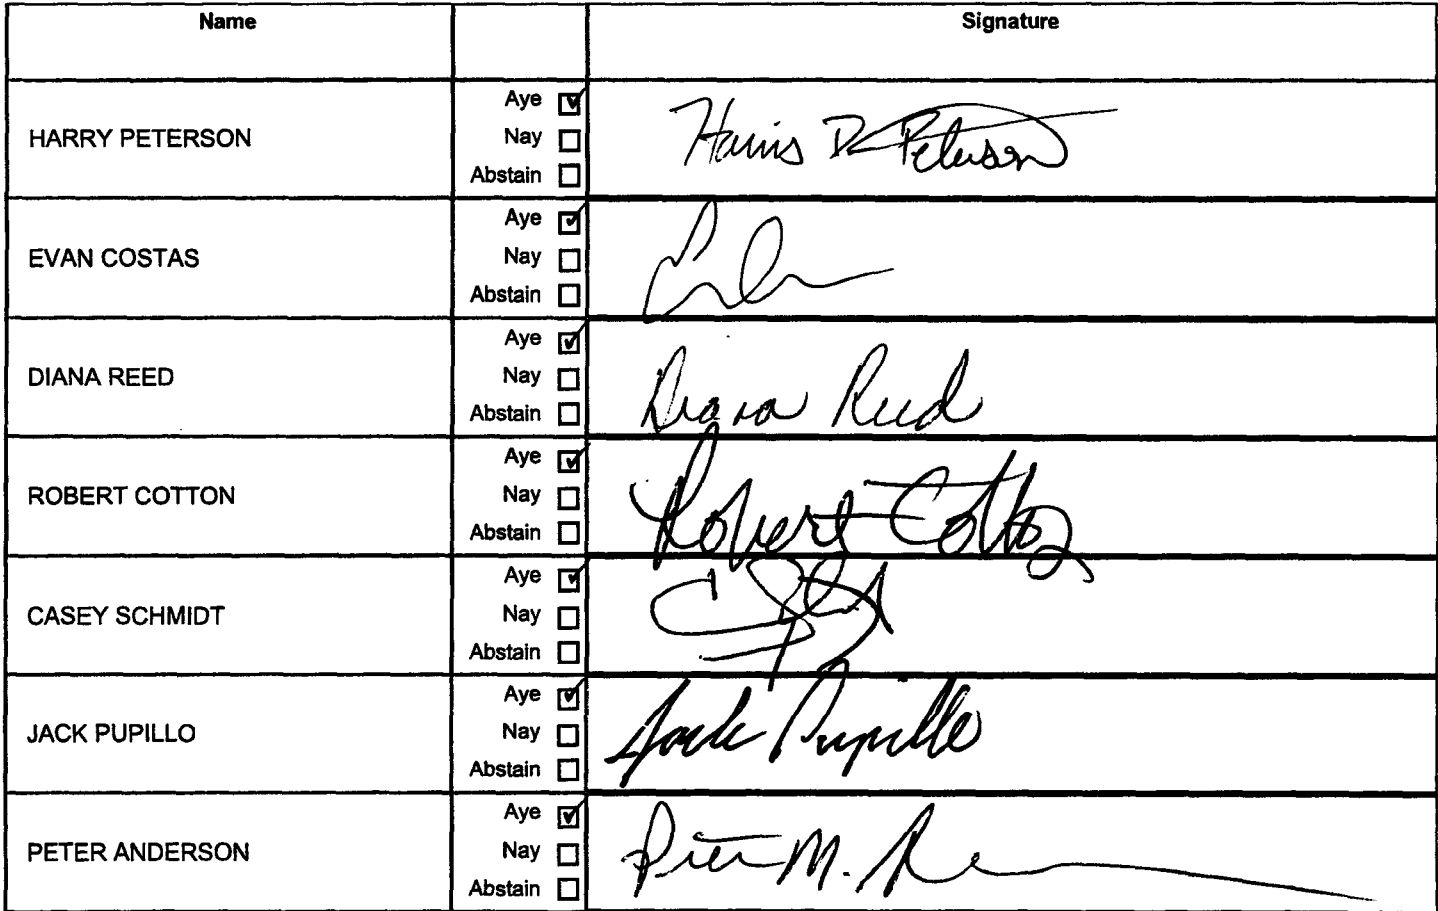 Name Signature
HARRY PETERSON
Aye ☑
Nay ☐
Abstain ☐
Harris D. Peterson
EVAN COSTAS
Aye ☑
Nay ☐
Abstain ☐
DIANA REED
Aye ☑
Nay ☐
Abstain ☐
Diana Reed
ROBERT COTTON
Aye ☑
Nay ☐
Abstain ☐
Robert Cotton
CASEY SCHMIDT
Aye ☑
Nay ☐
Abstain ☐
JACK PUPILLO
Aye ☑
Nay ☐
Abstain ☐
Jack Pupillo
PETER ANDERSON
Aye ☑
Nay ☐
Abstain ☐
Peter M.